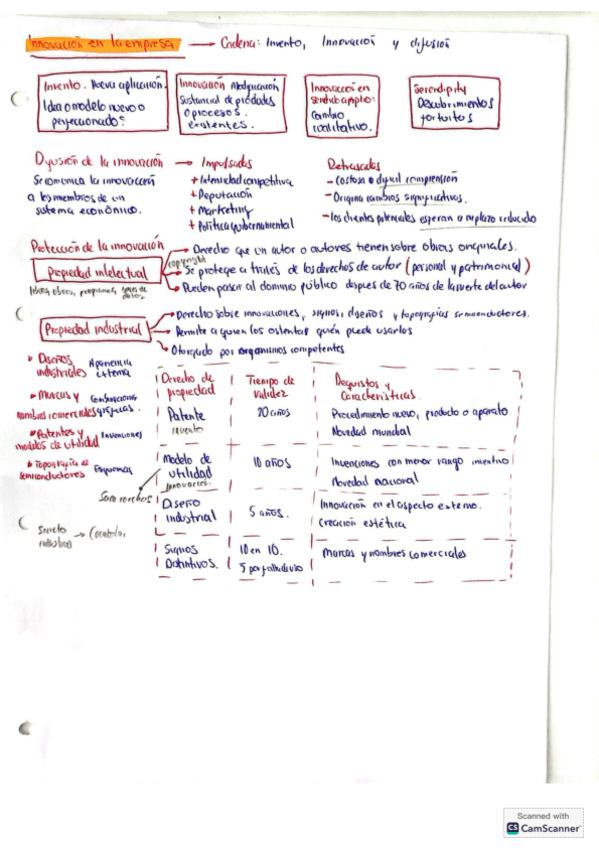 Innovación en la empresa → Cadena: Invento, Innovación y difusión
Invento. Nueva aplicación.
Idea o modelo nuevo o
perfeccionado?
Innovación Modificación
Sustancial de productos
o procesos
existentes.
Innovación en
sentido amplio:
Cambio
cualitativo.
Serendipity
Descubrimientos
fortuitos
Difusión de la innovación → Impulsadas
Se comunica la innovación
a los miembros de un
sistema económico.
+ Intensidad competitiva
+ Reputación
+ Marketing
+ Política gubernamental
Retrasadas
- Costosa o difícil comprensión
- Origina cambios significativos.
- Los clientes potenciales esperan a un plazo reducido
Protección de la innovación
Propiedad intelectual
copyright
Derecho que un autor o autores tienen sobre obras originales.
Se protege a través de los derechos de autor (personal y patrimonial)
Pueden pasar al dominio público después de 70 años de la muerte del autor
Propiedad industrial
Derecho sobre innovaciones, signos, diseños y topografías semiconductores.
Permite a quien los ostenta quién puede usarlos
Otorgado por organismos competentes
Diseños industriales Apariencia externa
Marcas y nombres comerciales Combinaciones gráficas.
Patentes y modelos de utilidad Invenciones
Topografía de semiconductores Esquemas
Secreto industrial →
Derecho de propiedad
Tiempo de validez
Requisitos y Características.
Patente
invento
20 años
Procedimiento nuevo, producto o aparato
Novedad mundial
Modelo de utilidad
innovación
10 años
Invenciones con menor rango inventivo
Novedad nacional
Sacacorchos
Diseño industrial
5 años.
Innovación en el aspecto externo.
Creación estética
Signos Distintivos.
10 en 10.
Marcas y nombres comerciales
Scanned with
CS CamScanner